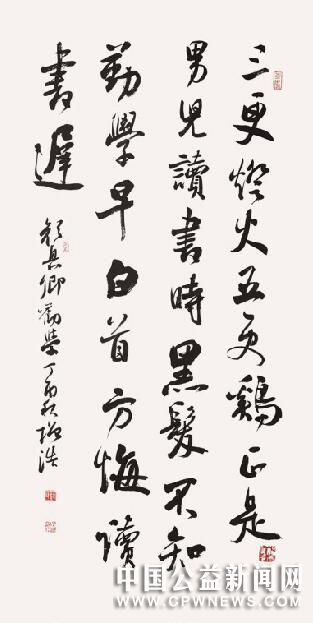 三更燈火五更鷄正是
男兒讀書時黑髮不知
勤學早白首方悔讀
書遲
顏真卿勸學丁酉秋浩
中国公益新闻网
WWW.CPWNEWS.COM